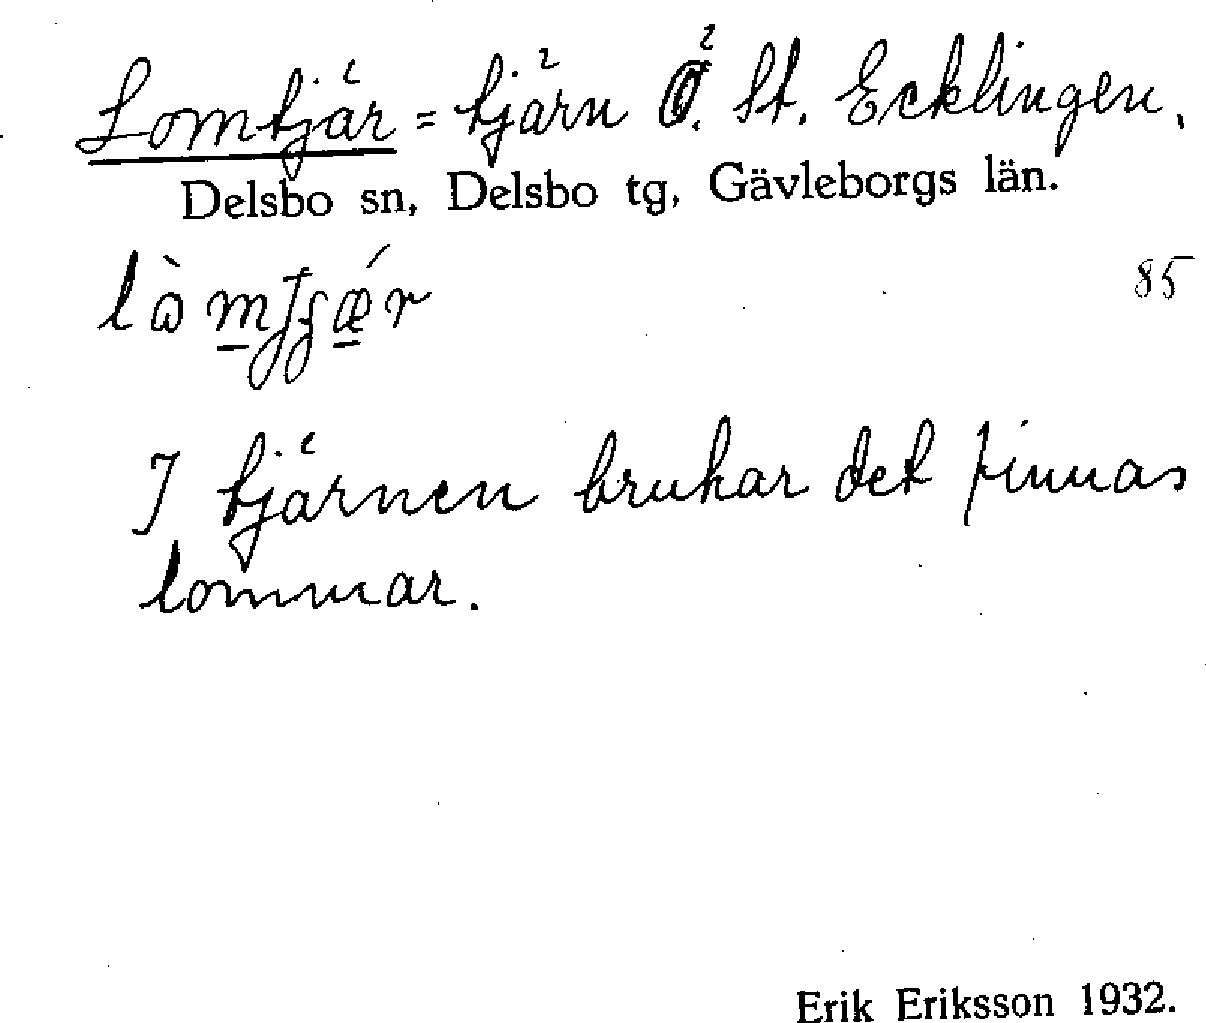 Lomtjär = tjärn Ö. St. Ecklingen.
Delsbo sn, Delsbo tg, Gävleborgs län.
85
I tjärnen brukar det finnas
lommar.
Erik Eriksson 1932.